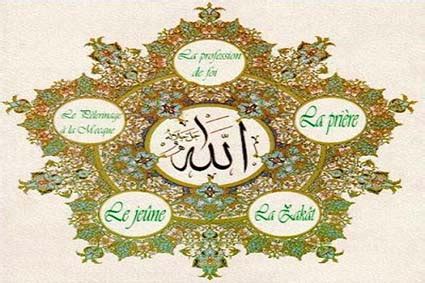 La profession
de foi
Le Pélerinage
à la Mecque
الله
La prière
Le jeûne
La Zakât